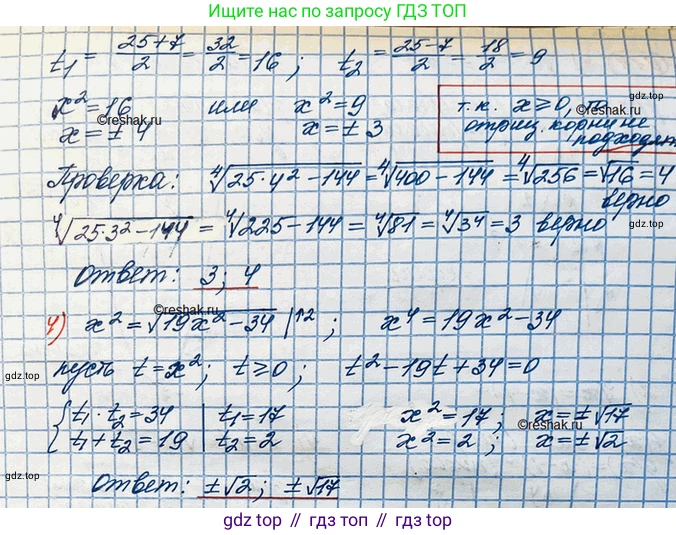 Ищите нас по запросу ГДЗ ТОП
t₁ = (25+7)/2 = 32/2 = 16; t₂ = (25-7)/2 = 18/2 = 9
x² = 16 или x² = 9
x = ± 4 x = ± 3
т.к. x ⩾ 0, то
отриц. корни не
подходят
©reshak.ru
Проверка: ⁴√(25·4² - 144) = ⁴√(400 - 144) = ⁴√256 = √16 = 4
верно
⁴√(25·3² - 144) = ⁴√(225 - 144) = ⁴√81 = ⁴√3⁴ = 3 верно
©reshak.ru
gdz.top
gdz.top
gdz.top
Ответ: 3; 4
©reshak.ru
4) x² = √(19x² - 34) |↑2; x⁴ = 19x² - 34
пусть t = x²; t ⩾ 0; t² - 19t + 34 = 0
gdz.top
gdz.top
{ t₁ · t₂ = 34 | t₁ = 17 x² = 17; x = ±√17
t₁ + t₂ = 19 | t₂ = 2 x² = 2; x = ±√2
©reshak.ru
gdz.top
Ответ: ±√2; ±√17
gdz.top // гдз топ // gdz.top